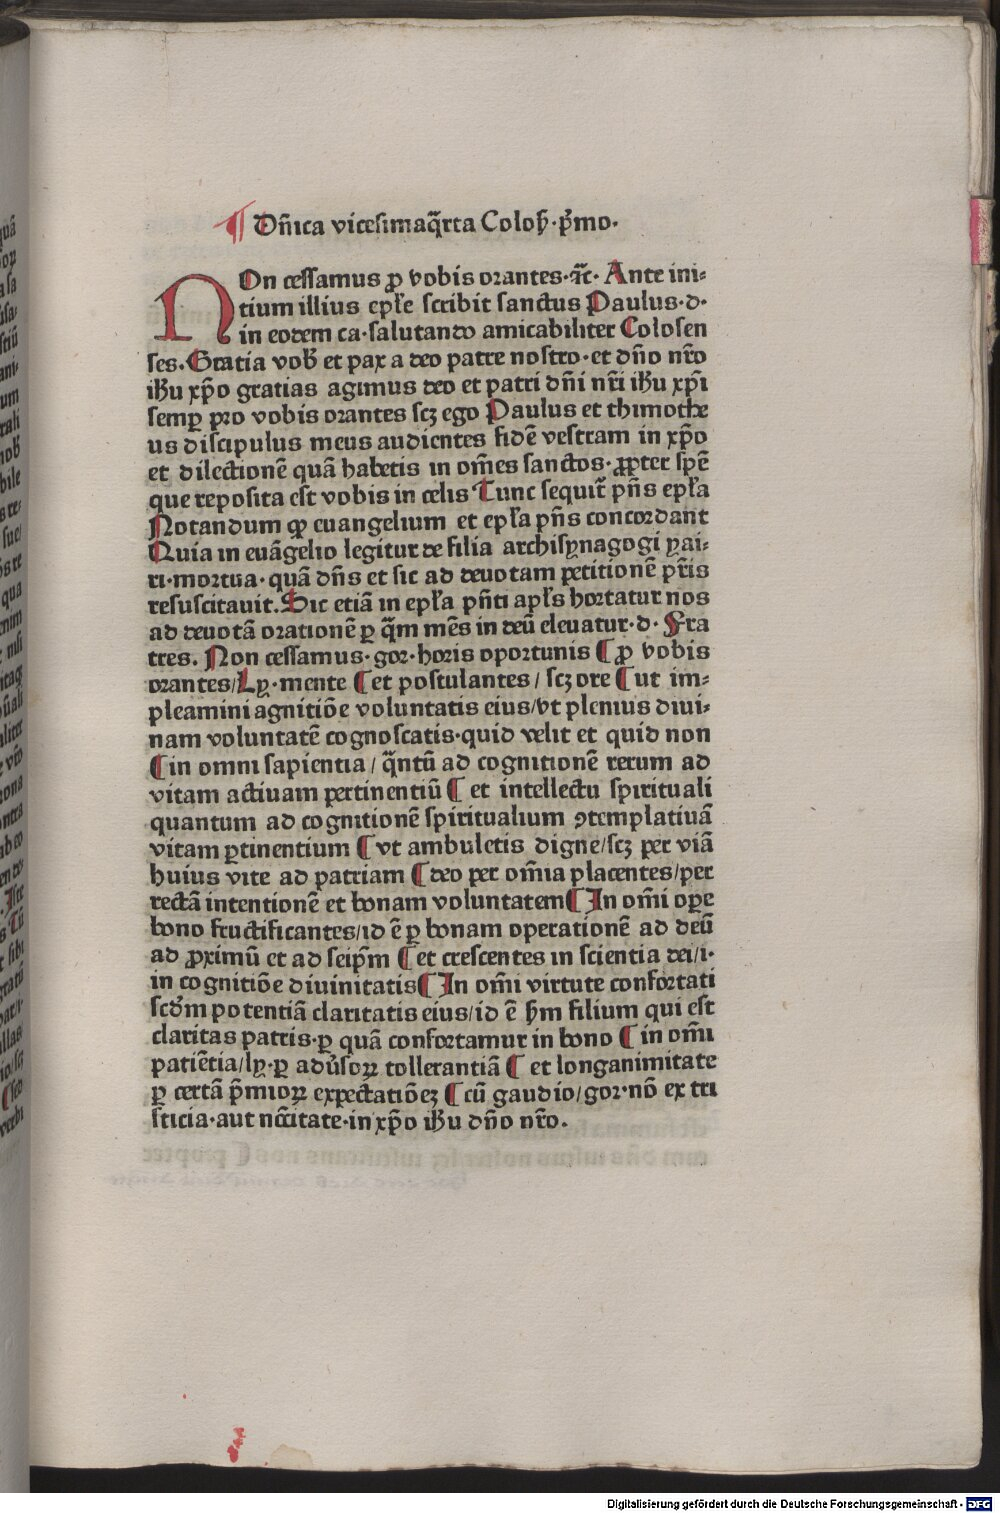 ¶ Dñica vicesimaq̄rta Coloſſ·p̄mo·
NOn cessamus ꝓ vobis orantes·⁊c̄· Ante ini⸗
tium illius epl̄e scribit sanctus Paulus·d·
in eodem ca·salutando amicabiliter Colosen
ses. Gratia vob̄ et pax a deo patre nostro·et dn̄o nr̄o
ih̄u xp̄o gratias agimus deo et patri dn̄i nr̄i ih̄u xp̄i
semꝑ pro vobis orantes scꝫ ego Paulus et thimothe
us discipulus meus audientes fidē vestram in xp̄o
et dilectionē quā habetis in om̄es sanctos·ꝓpter spē
que reposita est vobis in celis Tunc sequit᷑ pn̄s epl̄a
Notandum ꝙ euangelium et epl̄a pn̄s concordant
Quia in euāgelio legitur de filia archisynagogi yai⸗
ri·mortua·quā dn̄s et sic ad deuotam petitionē pr̄is
resuscitauit. Sic etiā in epl̄a pn̄ti apl̄s hortatur nos
ad deuotā orationē ꝑ q̄m mēs in deū eleuatur·d· Fra
tres. Non cessamus·gor·horis oportunis ¶ ꝓ vobis
orantes/Ly·mente ¶ et postulantes/ scꝫ ore ¶ ut im⸗
pleamini agnitiōe voluntatis eius/vt plenius diui⸗
nam voluntatē cognoscatis·quid velit et quid non
¶ in omni sapientia/ q̄ntū ad cognitionē rerum ad
vitam actiuam pertinentiū ¶ et intellectu spirituali
quantum ad cognitionē spiritualium ꝯtemplatiuā
vitam ꝑtinentium ¶ vt ambuletis digne/scꝫ per viā
huius vite ad patriam ¶ deo per om̄ia placentes/per
rectā intentionē et bonam voluntatem ¶ In om̄i oꝑe
bono fructificantes/id ē ꝑ bonam operationē ad deū
ad ꝓximū et ad seip̄m ¶ et crescentes in scientia dei/i·
in cognitiōe diuinitatis ¶ In om̄i virtute confortati
scd̄m potentiā claritatis eius/id ē h̄m filium qui est
claritas patris·ꝑ quā confortamur in bono ¶ in om̄i
patiētia/ly·ꝑ adu̓soꝝ tollerantiā ¶ et longanimitate
ꝑ certā p̄mioꝝ expectatiōeꝫ ¶ cū gaudio/gor·nō ex tri
sticia·aut nc̄citate·in xp̄o ih̄u dn̄o nr̄o.
Digitalisierung gefördert durch die Deutsche Forschungsgemeinschaft - DFG